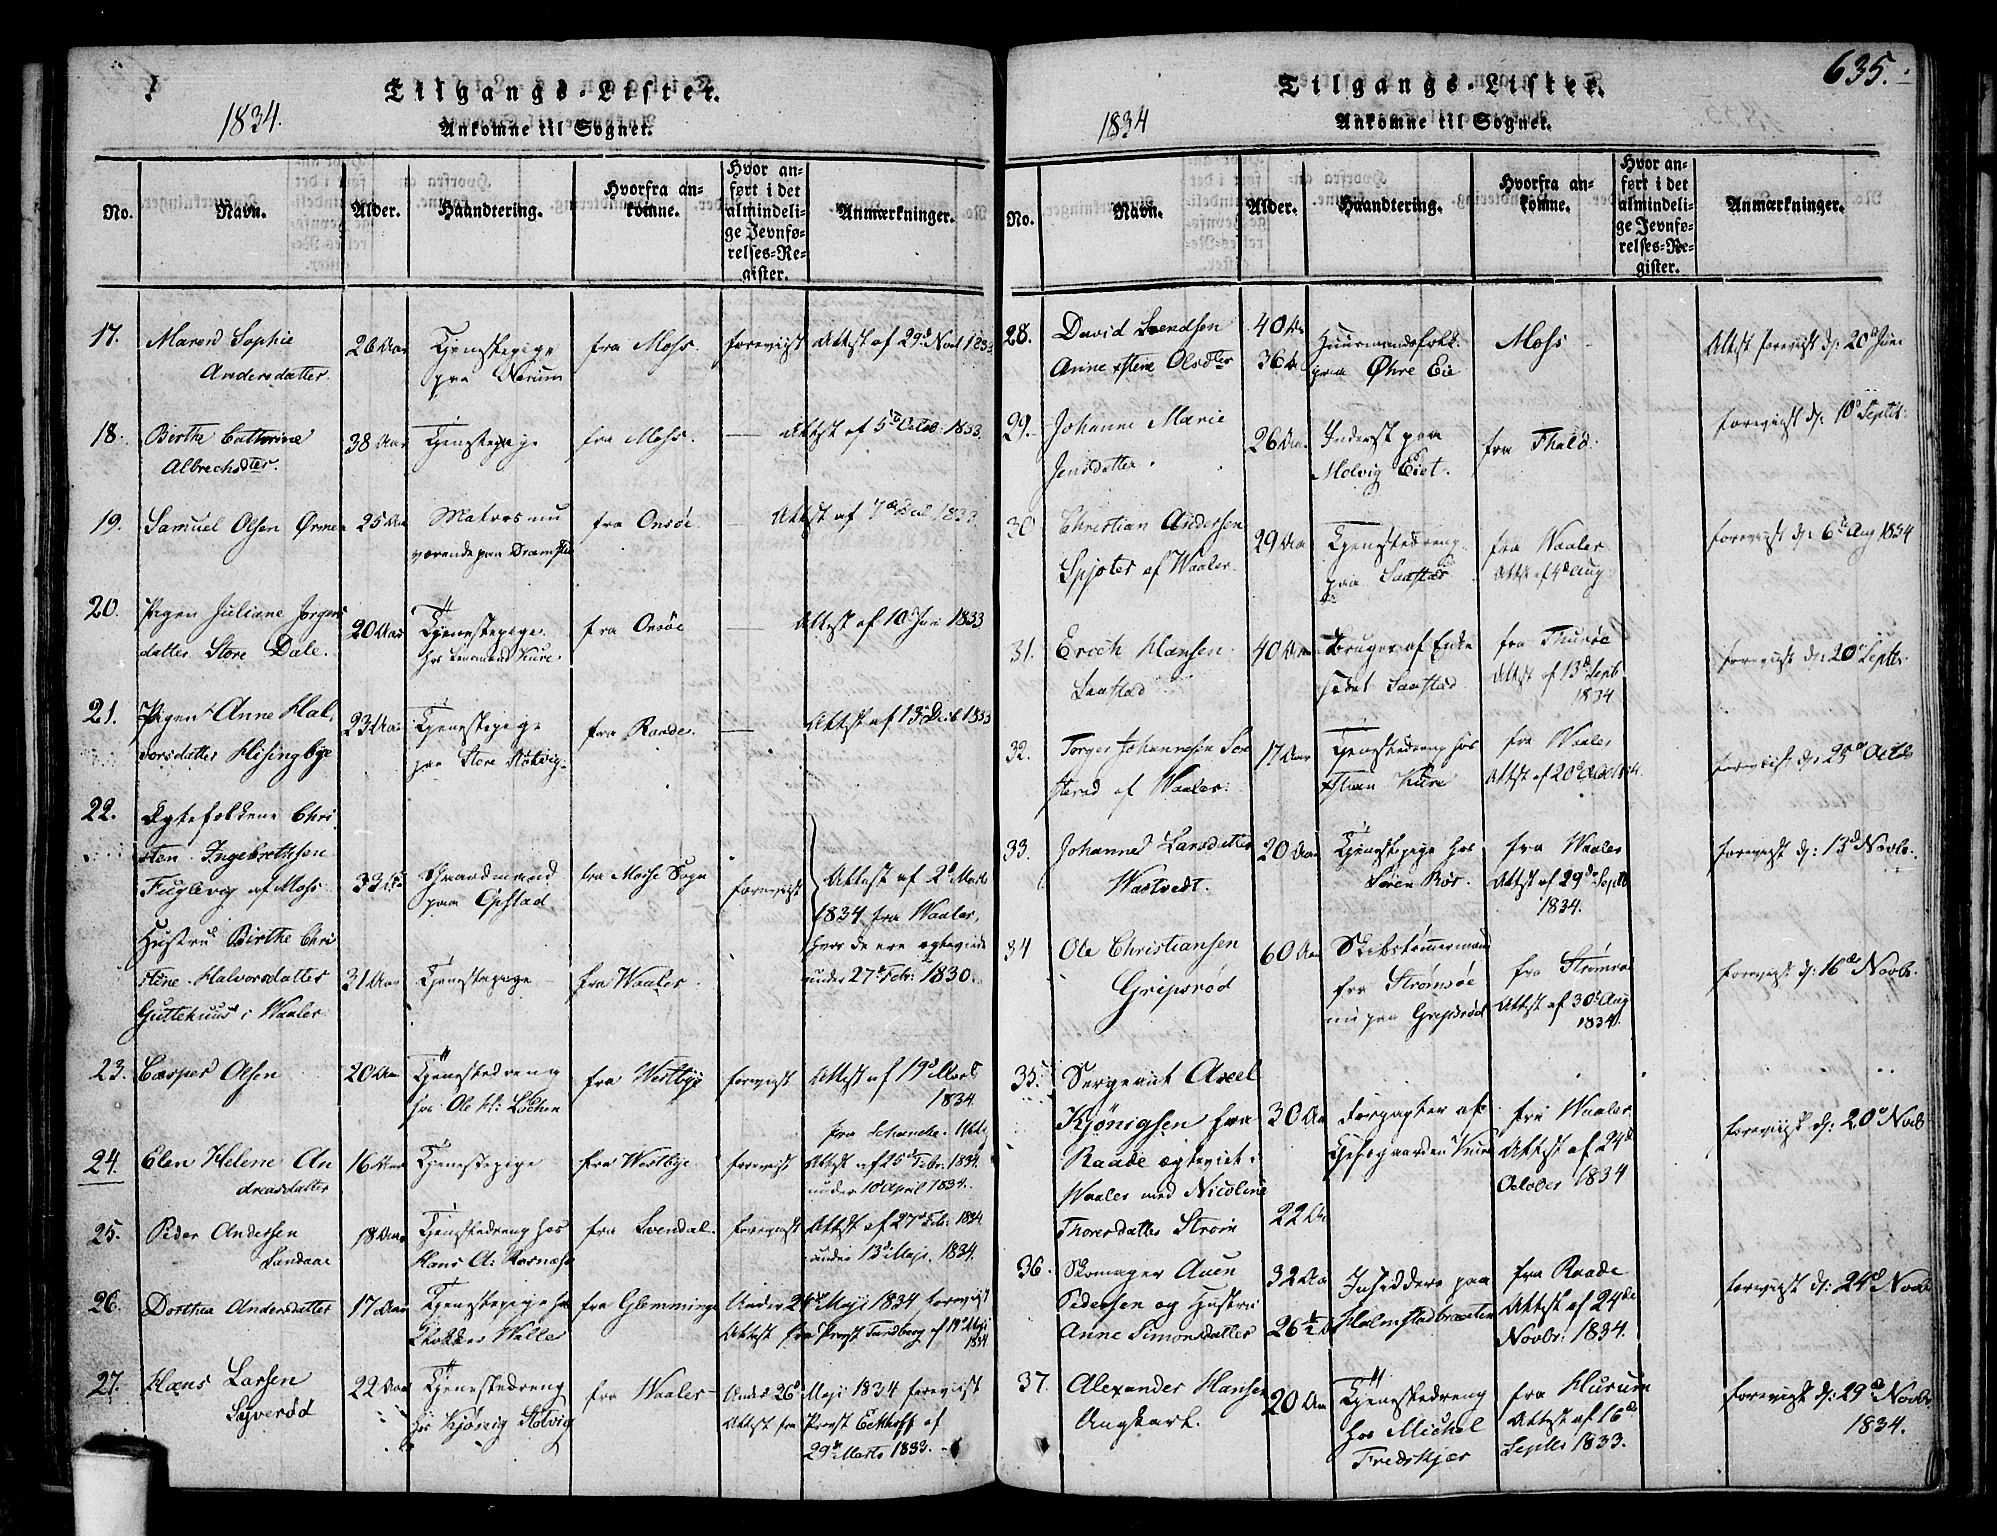 Tilgangs-Lister.
1834.
Ankomne til Sognet.
No.
Navn.
Alder.
Haandtering.
Hvorfra an-
komne.
Hvor an-
ført i det
almindeli-
ge Jevnfø-
relses-Re-
gister.
Anmærkninger.
17.
Maren Sophie
Andersdatter.
26 Aar
Tjenestepige
paa Nærum
fra Moss.
forevigt
Attest af 29d Novb 1833
18.
Birthe Cathrine
Albrechsdter.
38 Aar
Tjenestepige
fra Moss.
Attest af 5te Octob: 1833.
19.
Samuel Olsen Ørmen
25 Aar
Matros nu
værende paa
fra Onsøe
Attest af 7de Dec. 1833.
20.
Pigen Juliane Jørgens
datter Store Dale.
20 Aar
Tjenestepige
hos Kure.
fra Onsøe
Attest af 10 Juni 1833
21.
Pigen Anne Hal,
vorsdatter Hisingbye
23 Aar
Tjenestepige
paa Store
fra Raade.
Attest af 13d Decb 1833
22.
Ægtefolkene Chri
sten Ingebrethsen
Fuglevig af Moss
Hustru Birthe Chri
stine Halvorsdatter
Guttehuus i Waaler
33 Aar
31 Aar
Gaardmand
paa Opstad
Tjenestepige
fra Mosse Sogn
fra Waaler
forevigt
Attest af 2d Marts
1834 fra Waaler,
hvor de ere egteviede
under 27d Febr: 1830.
23.
Casper Olsen
20 Aar
Tjenestedreng
hos Ole H: Løchen
fra Westbye
forevigt
Attest af 19d Marts
1834
24.
Elen Helene An
dreasdatter
16 Aar
Tjenestepige
fra Westbye
forevigt
fra Schanche.
Attest af 25d Febr: 1834.
under 10 April 1834.
25.
Peder Andersen
Sandaae
18 Aar
Tjenestedreng hos
Hans A:
fra Svendal.
forevigt
Attest af 27d Febr. 1834
under 13d Maji. 1834.
26.
Dorthea Andersdatter
17 Aar
Tjenestepige
Walle
fra Glemminge
Under 24d Maji 1834 forevist
Attest fra Prost Tandberg af 19d Maji
1834
27.
Hans Larsen
Syverød
22 Aar
Tjenestedreng
hos Kjønig
fra Waaler
Under 26d Maji 1834 forevist
Attest fra Provst Eckhoff af
29de Marts 1833.
635.
Tilgangs-Lister.
1834
Ankomne til Sognet.
No.
Navn.
Alder.
Haandtering.
Hvorfra an-
komne.
Hvor an-
ført i det
almindeli-
ge Jevnfø-
relses-Re-
gister.
Anmærkninger.
28.
David Svendsen
Anne Olsdter
40 Aar
36 Aar
Huusmandsfolk
paa Øhre Eie
Moss
Attest forevigt d: 20de Juni
29.
Johanne Marie
Jensdatter.
26 Aar
Inderst paa
Molvig Eiet.
fra Thalo:
forevigt d: 10d Septbr:
30
Christian Andersen
Spjøter af Waaler.
29 Aar
Tjenestedreng
paa Saastad
fra Waaler
Attest af 4d Aug:
forevigt d: 6te Aug 1834
31.
Erich Hansen
Saastad
40 Aar
Bruger af Enke
sædet Saastad
fra Thurøe
Attest af 13d Septb
1834
forevigt d: 20de Septbr.
32.
Torger Johannesen
af Waaler:
17 Aar
Tjenestedreng hos
Kure
fra Waaler
Attest af 20d
forevist d: 25de Octb
33.
Johanne Larsdatter
Wastvedt.
20 Aar
Tjenestepige hos
Søren Rør.
fra Waaler
Attest af 29de Septb
1834.
forevigt d: 13d Novbr.
34
Ole Christiansen
Gripsrød
60 Aar
Skibstømmermand
fra Strømsøe
nu paa Gripsrød
fra Strømsøe
Attest af 30d Aug
1834.
forevigt d: 16de Novbr.
35.
Sergeant Axel
Kjønigsen fra
Raade egteviet i
Waaler med Nicoline
Thoresdatter Strøm
30 Aar
22 Aar
Forpagter af
Chefsgaarden
fra Waaler
Attest af 24de
October 1834
forevigt d: 20d Novb
36.
Skomager Aven
Pedersen og Hustru
Anne Simonsdatter
32 Aar
26½ Aar
Insiddere paa
Halmstadbraaten
fra Raade
Attest af 24de
Novbr: 1834.
forevigt d: 24d Novbr
37.
Alexander Hansen
Angskart.
20 Aar
Tjenestedreng
hos Michel
Fredskjær
fra Hurum
Attest af 16de
Septbr 1833.
forevigt d: 29de Novbr
1834.